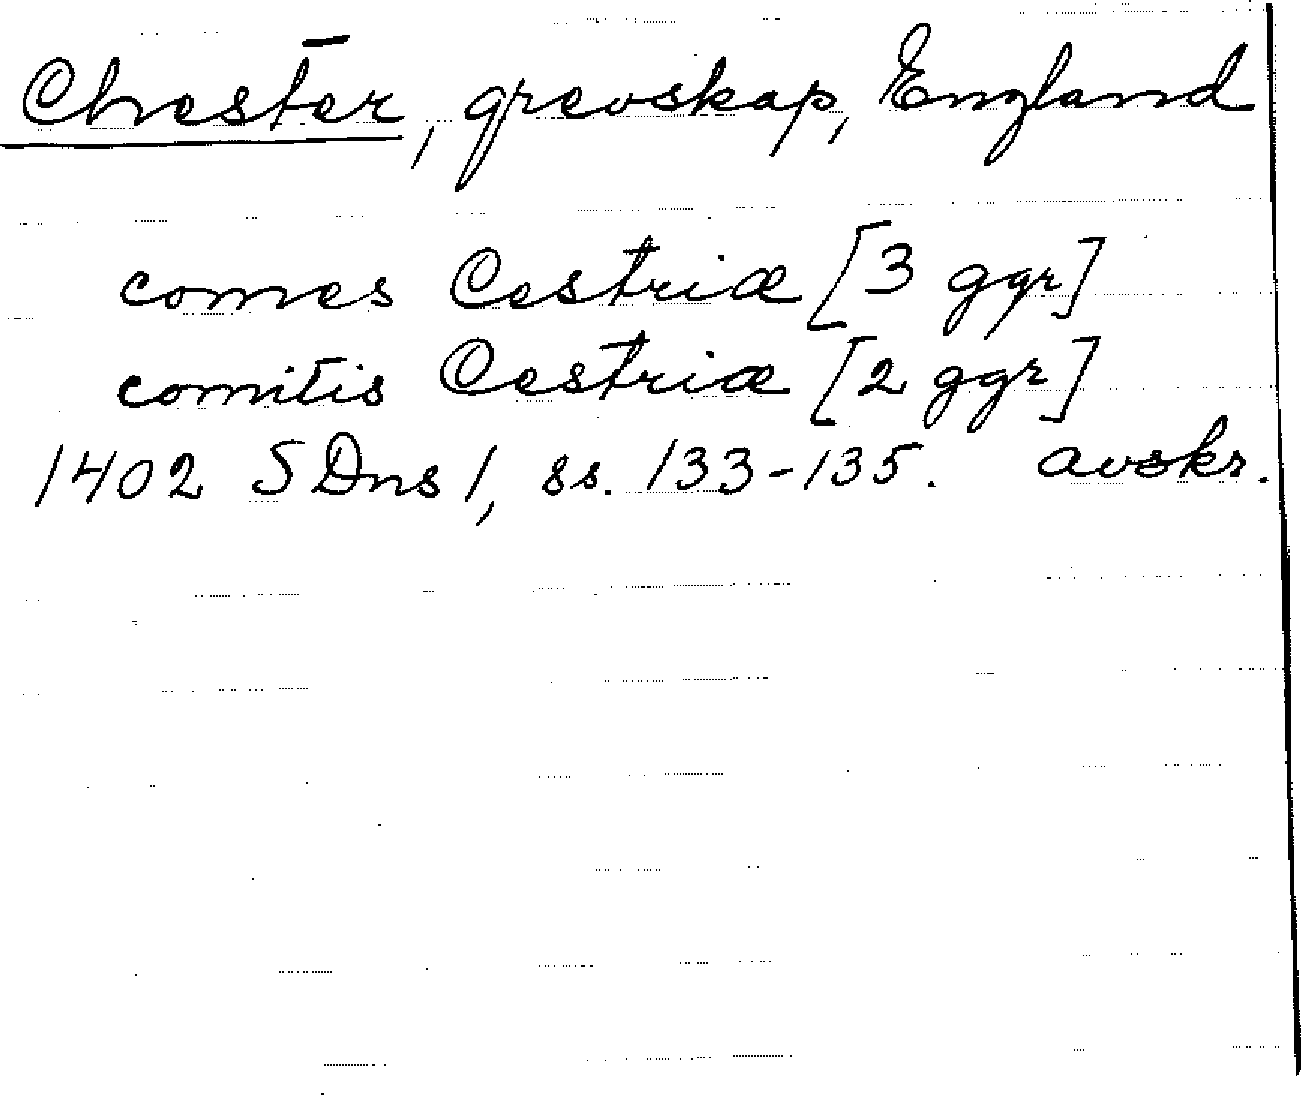 Chester, grevskap, England
comes Cestriæ [3 ggr]
comitis Cestriæ [2 ggr]
1402 SDns 1, ss. 133-135. avskr.